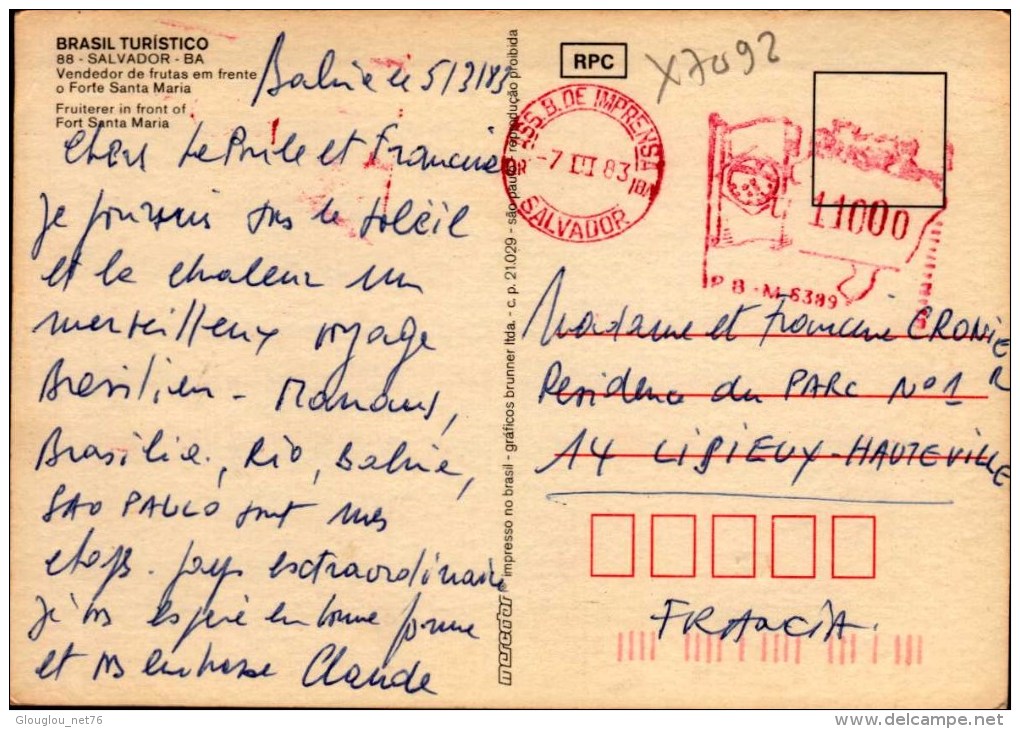 BRASIL TURÍSTICO
88 - SALVADOR - BA
Vendedor de frutas em frente
o Forte Santa Maria
Fruiterer in front of
Fort Santa Maria
Bahia le 5/3/83
et Francine
Je poursuis sous le soleil
et la chaleur un
merveilleux voyage
Brésilien - Manaus,
Brasilia, Rio, Bahia,
SAO PAULO sont mes
etapes. pays extraordinaire
Je vs espère en bonne forme
et vs embrasse Claude
mercator impresso no brasil - gráficos brunner ltda. - c. p. 21.029 - são paulo reprodução proibida
RPC
X7092
ASS. B. DE IMPRENSA
-7 III 83
SALVADOR
11000
P B - M 6389
Madame et Francine CRONIER
Residence du PARC N° 1
14 LISIEUX-HAUTEVILLE
FRANCIA.
Glouglou_net76
www.delcampe.net